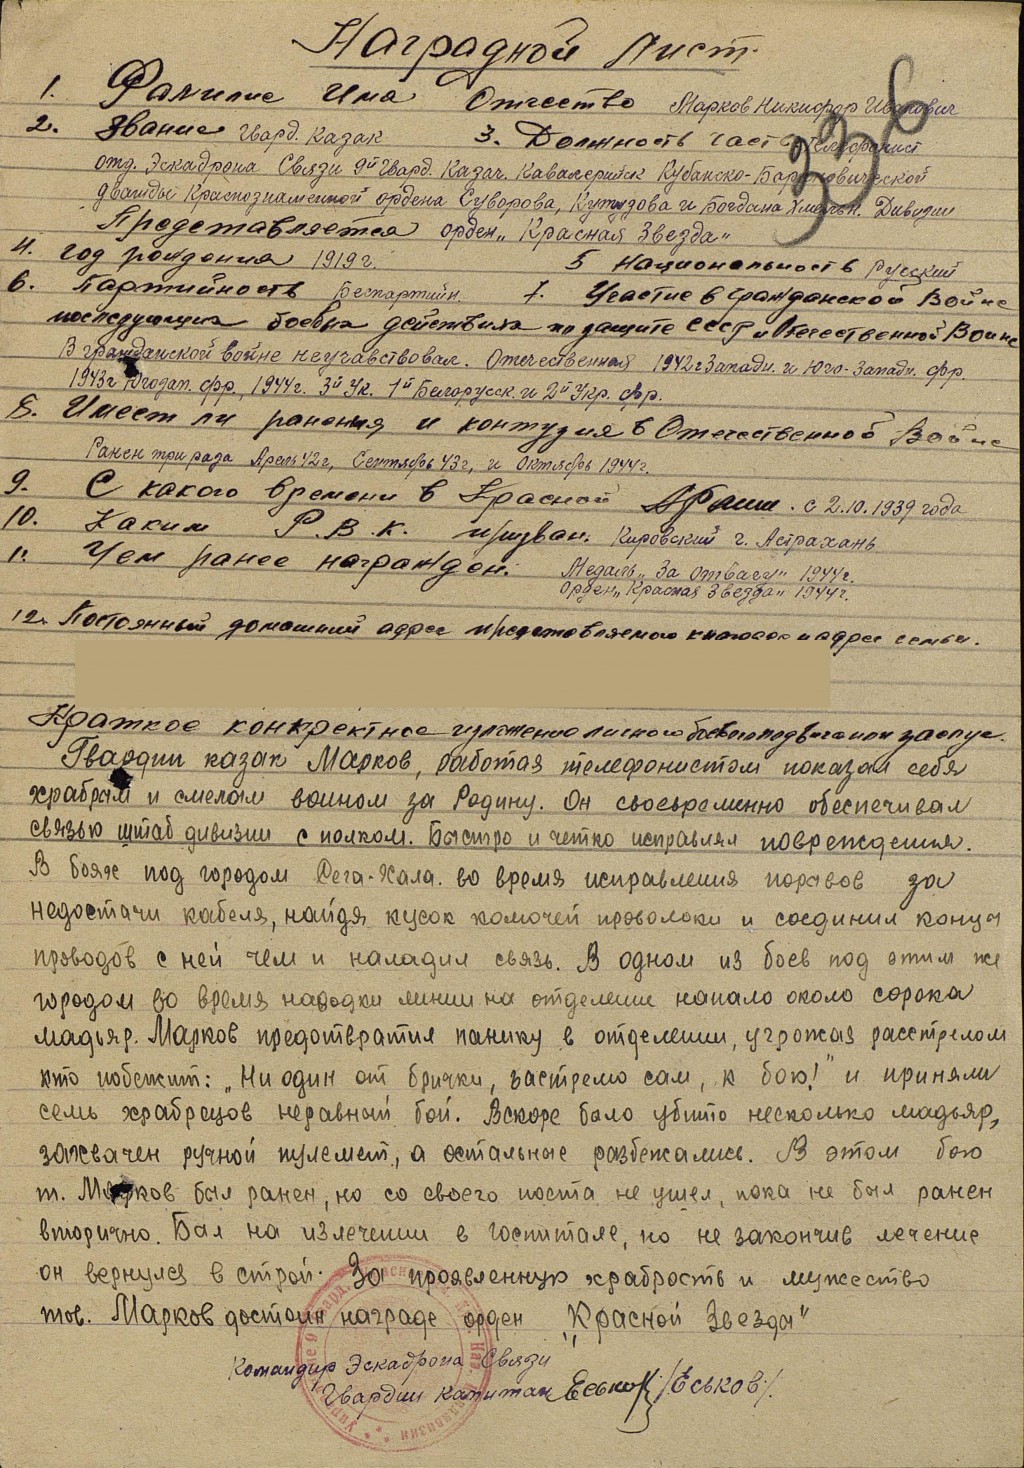 Наградной Лист.
336
1. Фамилие Има Отчество Марков Никифор Иванович
2. Звание Гвард. Казак 3. Должность часть телефонист
отд. Эскадрона Связи 9й Гвард. Казач. Кавалерийск Кубанско-Барановической
дважды Краснознаменной ордена Суворова, Кутузова и Богдана Хмельн. Дивизии
Представляется орден „Красная Звезда“
4. год рождения 1919 г. 5 Национальность Русский
6. Партийность Беспартийн. 7. Участие в гражданской Войне
последующих боевых действиях по защите СССР и Отечественной Войне
В гражданской войне неучавствовал. Отечественная 1942г Западн. и Юго-Западн. фр.
1943г Югозап. фр., 1944г. 3й Ук. 1й Белорусск. и 2й Укр. фр.
8. Имеет ли ранения и контузия в Отечественной Войне
Ранен три раза Апрель 42г, Сентябрь 43г, и Октябрь 1944г.
9. С какого времени в Красной Армии. с 2.10.1939 года
10. Каким Р.В.К. призван. Кировский г. Астрахань
11. Чем ранее награжден. Медаль „За отвагу“ 1944г.
орден „Красная Звезда“ 1944г.
12. Постоянный домашний адрес представляемого к и адрес семьи.
Краткое конкректное изложение личного боевого подвига или заслуг.
Гвардии казак Марков, работая телефонистом показал себя
храбрым и смелым воином за Родину. Он своевременно обеспечивал
связью штаб дивизии с полком. Быстро и четко исправлял повреждения.
В боях под городом Дега-Хала. во время исправления порывов за
недостачи кабеля, найдя кусок комочей проволоки и соединил концы
проводов с ней чем и наладил связь. В одном из боев под этим же
городом во время наводки линии на отделение напало около сорока
мадьяр. Марков предотвратил панику в отделении, угрожая расстрелом
кто побежит: „Ни один от брички, застрелю сам, к бою!“ и приняли
семь храбрецов неравный бой. Вскоре было убито несколько мадьяр,
захвачен ручной пулемет, а остальные разбежались. В этом бою
т. Марков был ранен, но со своего поста не ушел, пока не был ранен
вторично. Был на излечении в госпитале, но не закончив лечение
он вернулся в строй. За проявленную храбрость и мужество
тов. Марков достоин награде орден „Красной Звезды“
Командир Эскадрона Связи
Гвардии капитан Еськов /Еськов/.